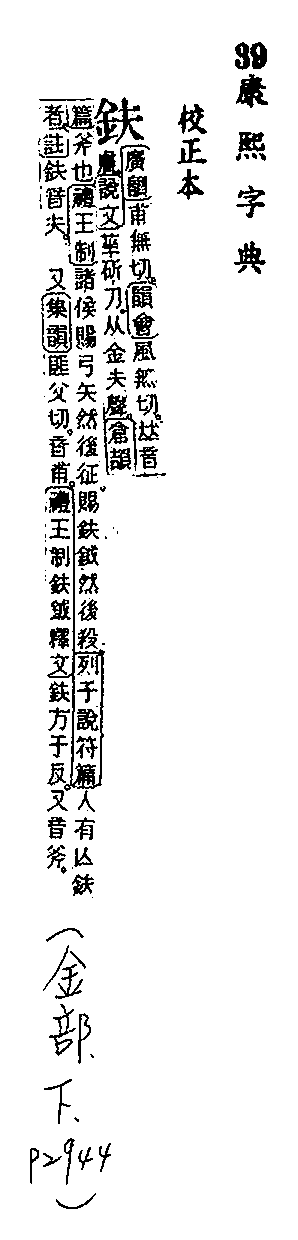 39康熙字典
校正本
鈇
廣韻甫無切韻會風無切𠀤音
膚說文莝斫刀从金夫聲倉頡
篇斧也禮王制諸侯賜弓矢然後征賜鈇鉞然後殺列子說符篇人有亡鈇
者註鈇音夫 又集韻匪父切音甫禮王制鈇鉞釋文鈇方于反又音斧
(金部、下、P2944)